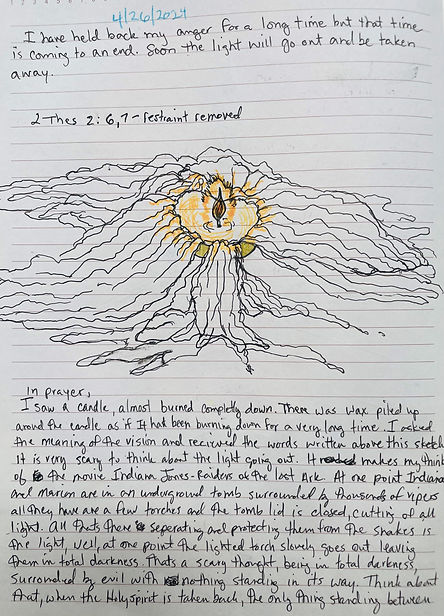 4/26/2024
I have held back my anger for a long time but that time
is coming to an end. Soon the light will go out and be taken
away.
2 Thes 2:6,7 - restraint removed
In prayer,
I saw a candle, almost burned completly down. There was wax piled up
around the candle as if it had been burning down for a very long time. I asked
the meaning of the vision and recieved the words written above this sketch
It is very scary to think about the light going out. It makes my think
of the movie Indiana Jones-Raiders of the Last Ark. At one point Indiana
and Marion are in an underground tomb surrounded by thousands of vipers
all they have are a few torches and the tomb lid is closed, cutting of all
light. All thats there seperating and protecting them from the snakes is
the light, well, at one point the lighted torch slowly goes out leaving
them in total darkness. Thats a scary thought, being in total darkness,
surrounded by evil with nothing standing in its way. Think about
that, when the Holy Spirit is taken back, the only thing standing between